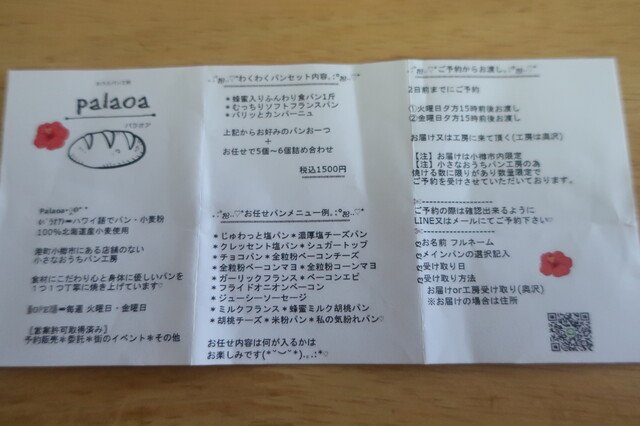 palaoa
パラオア
Palaoa
ハワイ語でパン・小麦粉
100%北海道産小麦使用
港町小樽市にある店舗のない
小さなおうちパン工房
食材にこだわり心と身体に優しいパンを
1つ1つ丁寧に焼き上げています♡
OPEN ━ 毎週 火曜日・金曜日
[営業許可取得済み]
予約販売*委託*街のイベント*その他
わくわくパンセット内容
*蜂蜜入りふんわり食パン1斤
*むっちりソフトフランスパン
*パリッとカンパーニュ
上記からお好みのパンお一つ
+
お任せで5個〜6個詰め合わせ
税込1500円
お任せパンメニュー例
*じゅわっと塩パン*濃厚塩チーズパン
*クレッセント塩パン*シュガートップ
*チョコパン*全粒粉ベーコンチーズ
*全粒粉ベーコンマヨ*全粒粉コーンマヨ
*ガーリックフランス*ベーコンエピ
*フライドオニオンベーコン
*ジューシーソーセージ
*ミルクフランス*蜂蜜ミルク胡桃パン
*胡桃チーズ*米粉パン*私の気紛れパン♡
お任せ内容は何が入るかは
お楽しみです(*˘︶˘*).。.:*♡
ご予約からお渡し
2日前までにご予約
①火曜日夕方15時前後お渡し
②金曜日夕方15時前後お渡し
お届け又は工房に来て頂く(工房は奥沢)
【注】お届けは小樽市内限定
【注】小さなおうちパン工房の為
焼ける数に限りがあり数量限定で
ご予約を受けさせていただいております。
ご予約の際は確認出来るように
LINE又はメールにてご予約下さい♡
お名前 フルネーム
メインパンの選択記入
受け取り日
受け取り方法
お届けor工房受け取り(奥沢)
※お届けの場合は住所